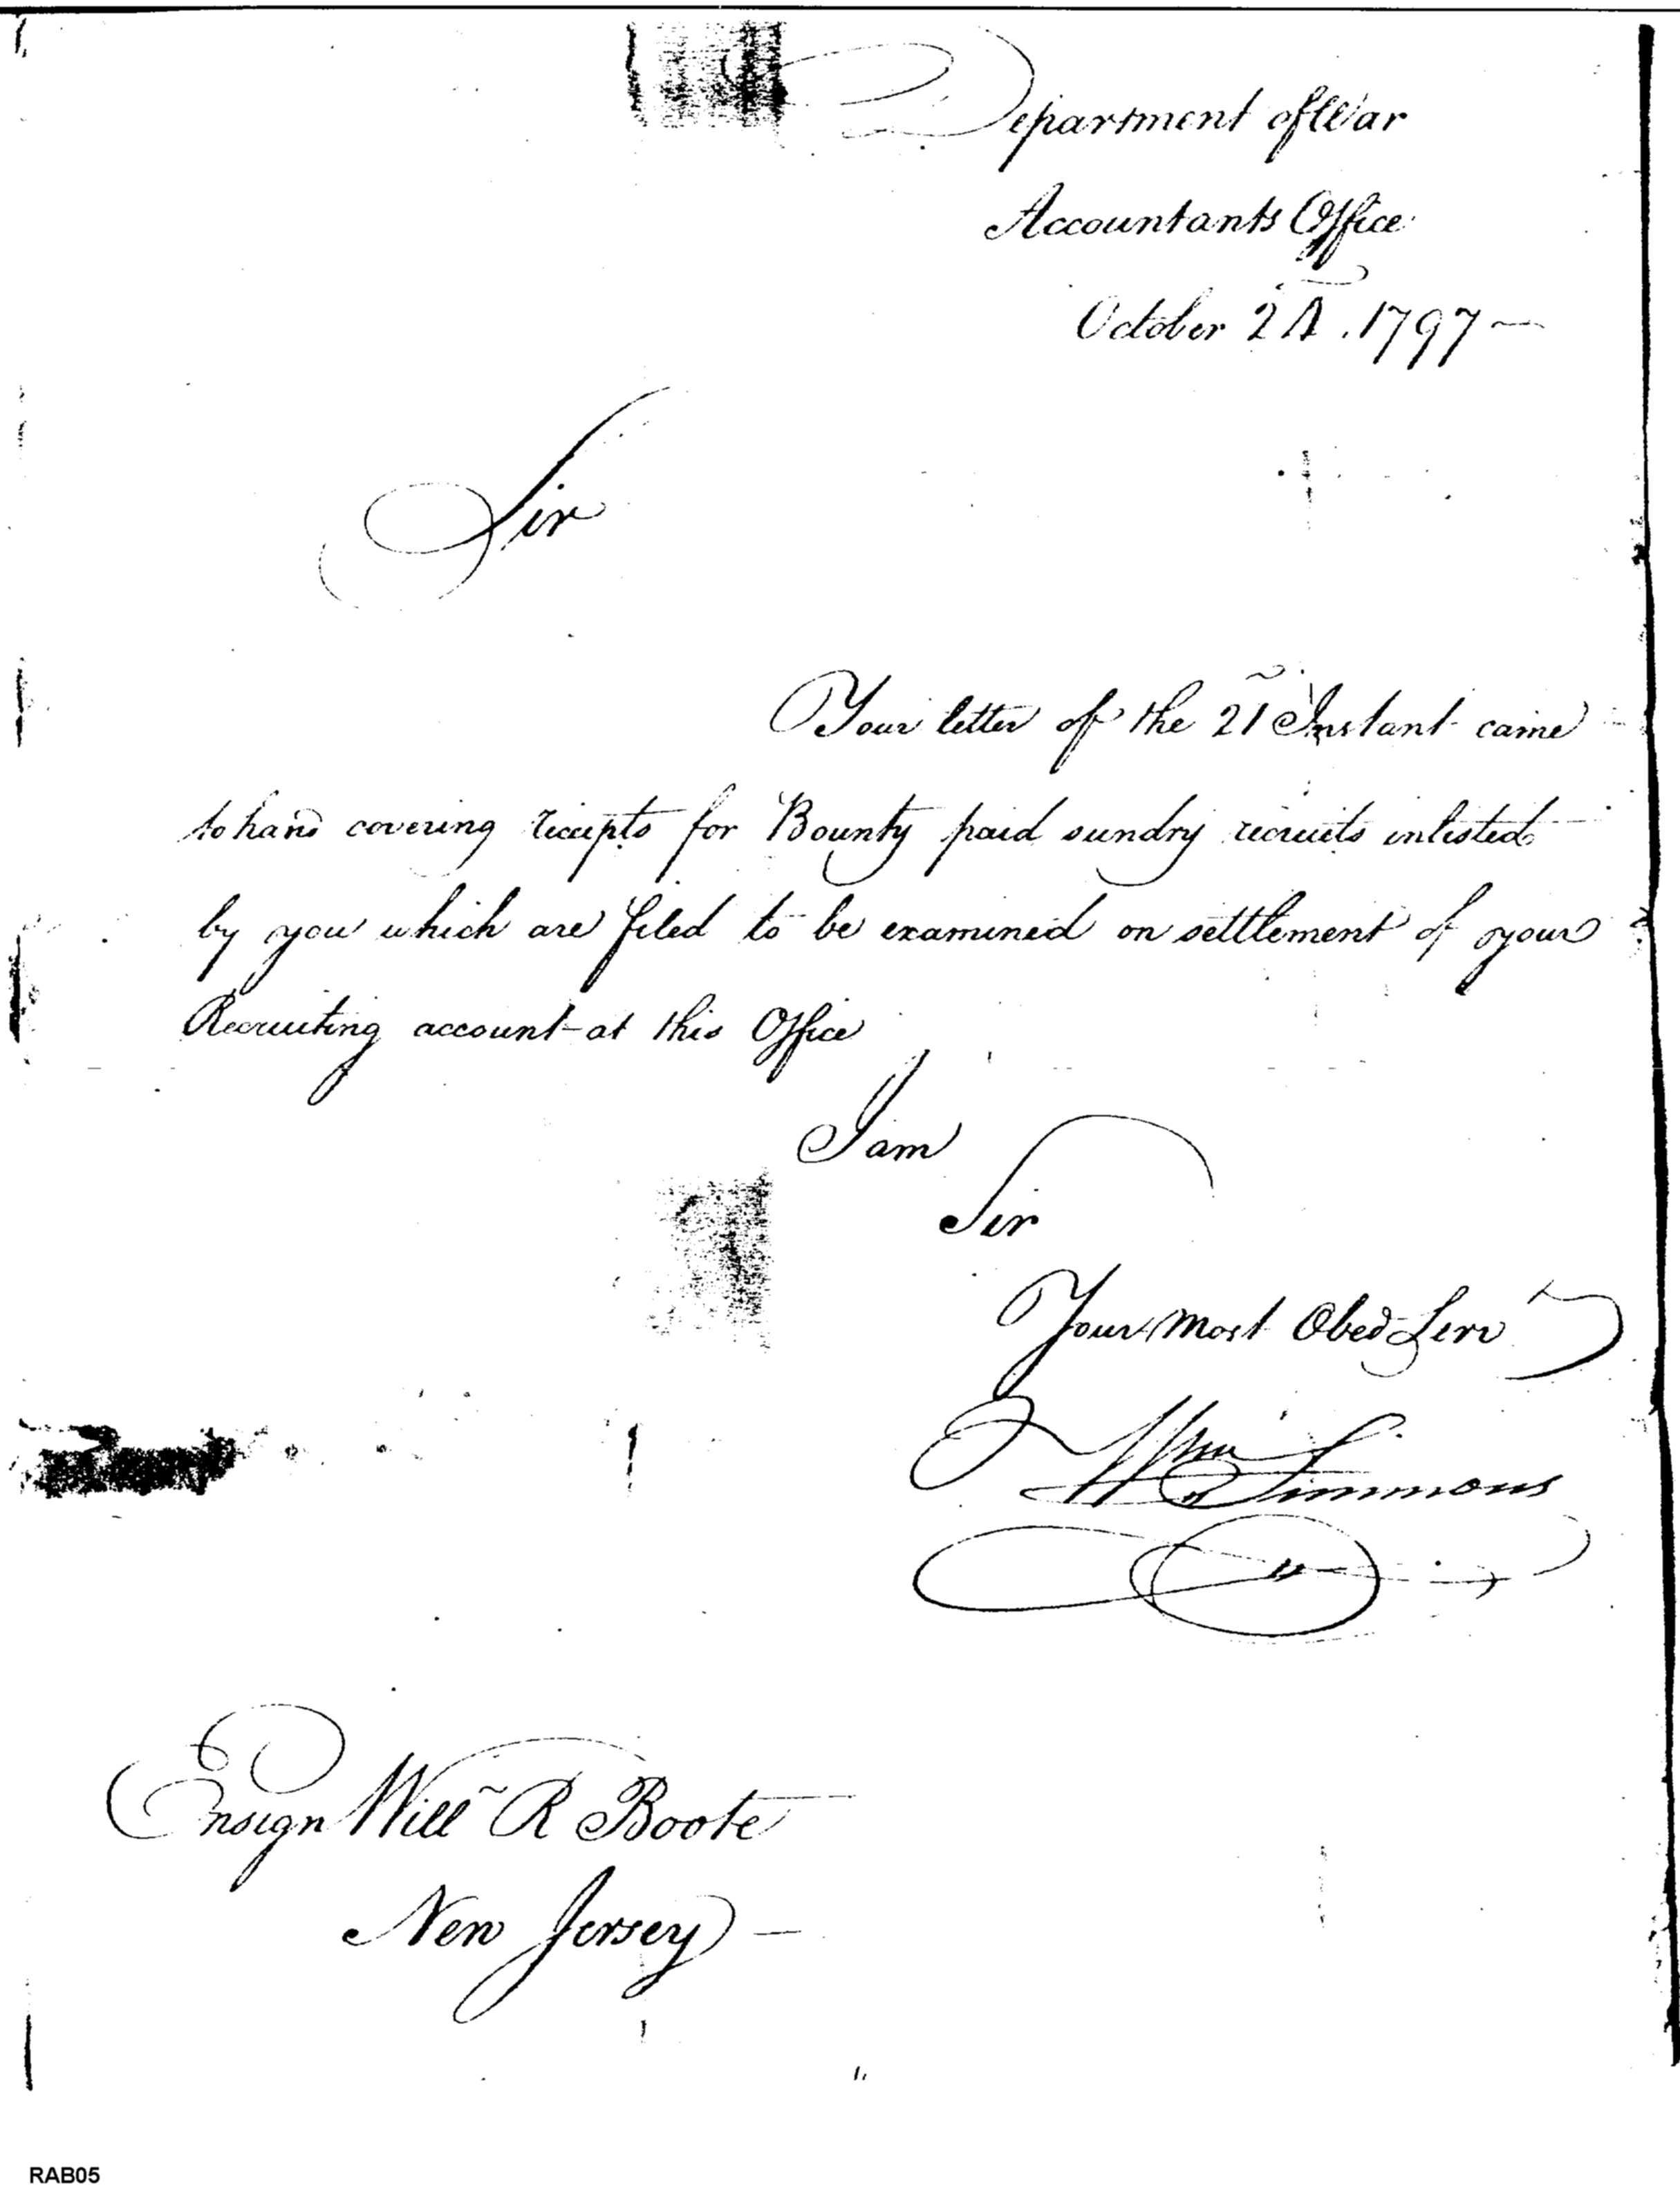 Department of War
Accountants Office
October 24. 1797
Sir
Your letter of the 21 Instant came
to hand covering receipts for Bounty paid sundry recruits inlisted
by you which are filed to be examined on settlement of your
Recruiting account at this Office
I am
Sir
Your most Obed Serv
Wm Simmons
Ensign Will R Boote
New Jersey
RAB05